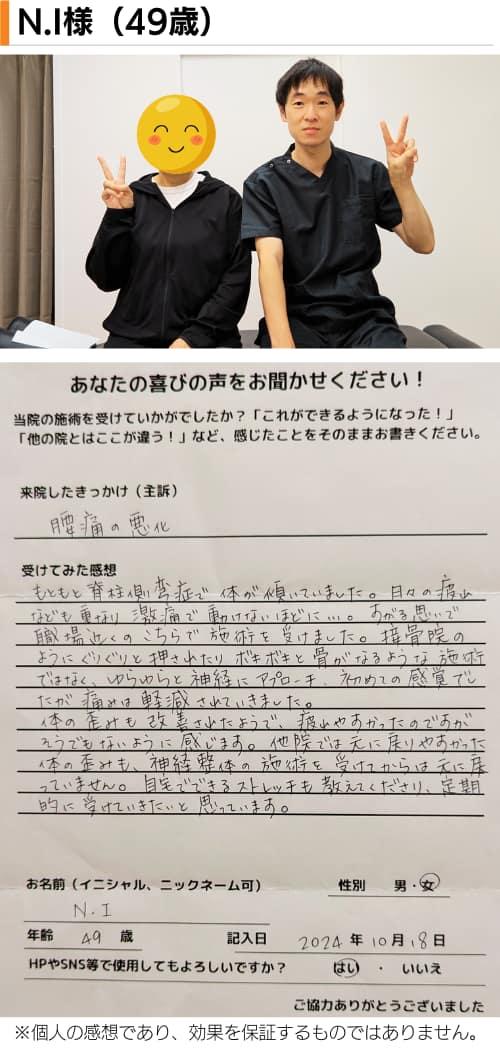 N.I様（49歳）
あなたの喜びの声をお聞かせください！
当院の施術を受けていかがでしたか？「これができるようになった！」
「他の院とはここが違う！」など、感じたことをそのままお書きください。
来院したきっかけ（主訴）
腰痛の悪化
受けてみた感想
もともと脊柱側弯症で体が傾いていました。日々の疲れ
なども重なり激痛で動けないほどに…。すがる思いで
職場近くのこちらで施術を受けました。接骨院の
ようにぐりぐりと押されたりボキボキと骨がなるような施術
ではなく、ゆらゆらと神経にアプローチ、初めての感覚でし
たが痛みは軽減されていきました。
体の歪みも改善されたようで、疲れやすかったのですが
そうでもないように感じます。他院では元に戻りやすかった
体の歪みも、神経整体の施術を受けてからは元に戻
っていません。自宅でできるストレッチも教えてくださり、定期
的に受けていきたいと思っています。
お名前（イニシャル、ニックネーム可） 性別 男・女
N.I
年齢 49 歳 記入日 2024年10月18日
HPやSNS等で使用してもよろしいですか？ はい ・ いいえ
ご協力ありがとうございました
※個人の感想であり、効果を保証するものではありません。